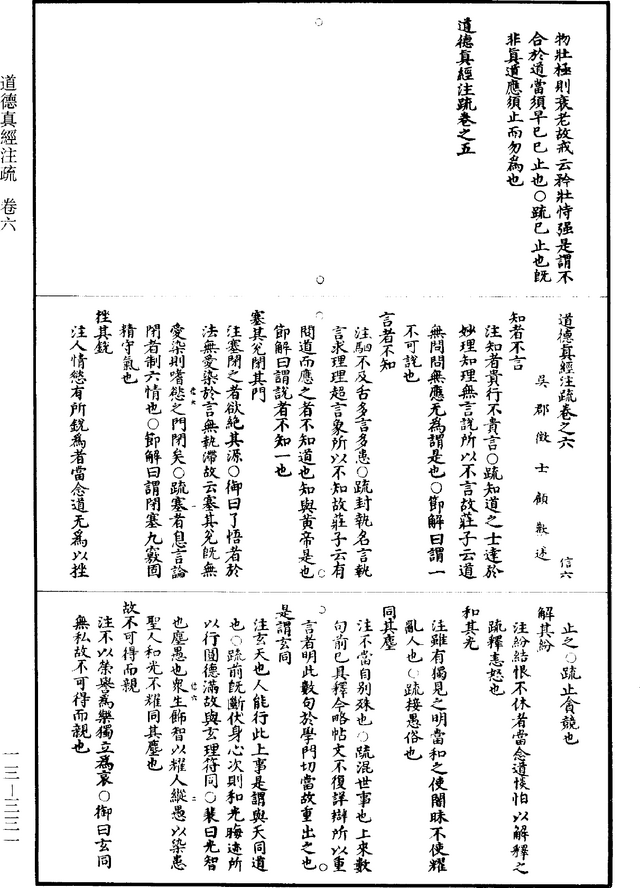 道德真經注疏　卷六
物壯極則衰老故戒云矜壯恃强是謂不
合於道當須早已已止也○疏已止也旣
非眞道應須止而勿為也
道德真經注疏卷之五
道德真經注疏卷之六　信六
吳郡徵士顧歡述
知者不言
注知者貴行不貴言○疏知道之士達於
妙理知理無言說所以不言故莊子云道
無問問無應无為謂是也○節解曰謂一
不可說也
言者不知
注駟不反舌多言多患○疏封執名言執
言求理理超言象所以不知故莊子云有
問道而應之者不知道也知與黃帝是也
節解曰謂說者不知一也
塞其兌閉其門
注塞閉之者欲絕其源○御曰了悟者於
法無愛染於言無執滯故云塞其兌旣無
愛染則嗜慾之門閉矣○疏塞者息言論
閉者制六情也○節解曰謂閉塞九竅固
精守氣也
挫其銳
注人情慾有所銳為者當念道无為以挫
止之○疏止貪競也
解其紛
注紛結恨不休者當念道惔怕以解釋之
疏釋恚怒也
和其光
注雖有獨見之明當和之使闇昧不使耀
亂人也○疏接愚俗也
同其塵
注不當自別殊也○疏混世事也上來數
句前已具釋今略帖文不復詳辯所以重
言者明此數句於學門切當故重出之也
是謂玄同
注玄天也人能行此上事是謂與天同道
也○疏前旣斷伏身心次則和光晦迹所
以行圓德滿故與玄理符同○裴曰光智
也塵愚也衆生飾智以耀人縱愚以染患
聖人和光不耀同其塵也
故不可得而親
注不以榮譽為樂獨立為哀○御曰玄同
無私故不可得而親也
一三—三三一